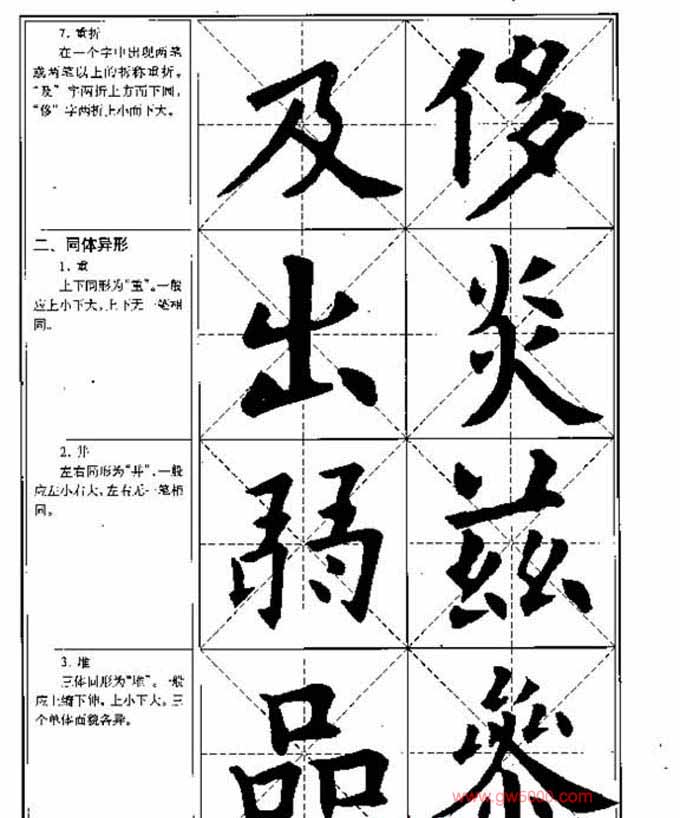 7. 重折
在一个字中出现两笔
或两笔以上的折称重折。
“及”字两折上方而下圆，
“侈”字两折上小而下大。
及 侈
二、同体异形
1. 重
上下同形为“重”。一般
应上小下大，上下无一笔相
同。
出 炎
2. 并
左右同形为“并”，一般
应左小右大，左右无一笔相
同。
弱 兹
3. 堆
三体同形为“堆”。一般
应上缩下伸，上小下大，三
个单体面貌各异。
品 叅
www.gw5000.com